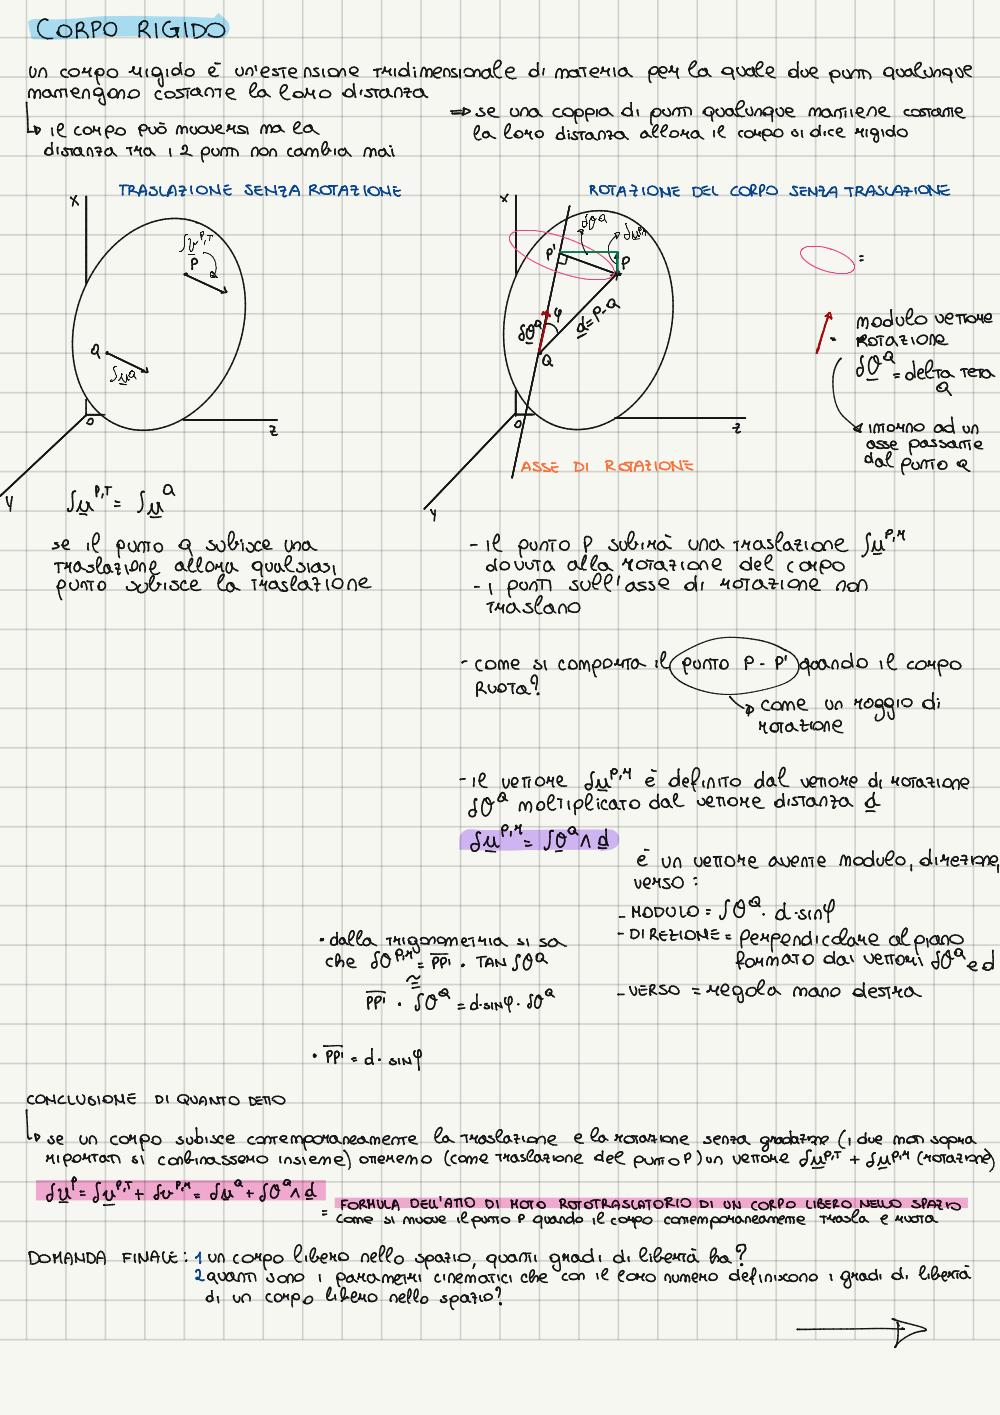 CORPO RIGIDO
un corpo rigido è un'estensione tridimensionale di materia per la quale due punti qualunque
mantengono costante la loro distanza
↳ il corpo può muoversi ma la
distanza tra i 2 punti non cambia mai
⇒ se una coppia di punti qualunque mantiene costante
la loro distanza allora il corpo si dice rigido
TRASLAZIONE SENZA ROTAZIONE
X
δu^P,T
P
Q
δu^Q
O
Z
Y
δu^P,T = δu^Q
se il punto Q subisce una
traslazione allora qualsiasi
punto subisce la traslazione
ROTAZIONE DEL CORPO SENZA TRASLAZIONE
X
δθ^Q
δu^P,r
P'
P
δθ^Q
φ
d=P-Q
Q
O
Z
Y
ASSE DI ROTAZIONE
=
modulo vettore
rotazione
δθ^Q = delta teta
Q
intorno ad un
asse passante
dal punto Q
- il punto P subirà una traslazione δu^P,r
dovuta alla rotazione del corpo
- i punti sull'asse di rotazione non
traslano
- come si comporta il punto P-P' quando il corpo
ruota?
come un raggio di
rotazione
- il vettore δu^P,r è definito dal vettore di rotazione
δθ^Q moltiplicato dal vettore distanza d
δu^P,r = δθ^Q ∧ d
è un vettore avente modulo, direzione,
verso:
- MODULO = δθ^Q · d·sinφ
- DIREZIONE = perpendicolare al piano
formato dai vettori δθ^Q e d
- VERSO = regola mano destra
• dalla trigonometria si sa
che δθ^P,r = PP' · TAN δθ^Q
≅
PP' · δθ^Q = d·sinφ·δθ^Q
• PP' = d· sinφ
CONCLUSIONE DI QUANTO DETTO
↳ se un corpo subisce contemporaneamente la traslazione e la rotazione senza gradazine (i due moti sopra
riportati si conbinassero insieme) otteremo (come traslazione del punto P) un vettore δu^P,T + δu^P,r (rotazione)
δu^P = δu^P,T + δu^P,r = δu^Q + δθ^Q ∧ d
= FORMULA DELL'ATTO DI MOTO ROTOTRASLATORIO DI UN CORPO LIBERO NELLO SPAZIO
come si muove il punto P quando il corpo contemporaneamente trasla e ruota
DOMANDA FINALE: 1 un corpo libero nello spazio, quanti gradi di libertà ha?
2 quanti sono i parametri cinematici che con il loro numero definiscono i gradi di libertà
di un corpo libero nello spazio?